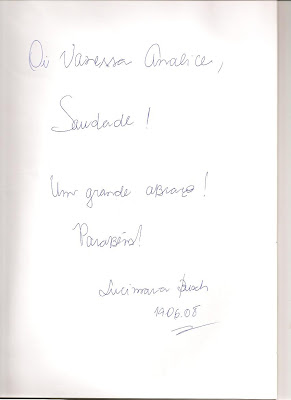 Oi Vanessa Analice,
Saudade!
Um grande abraço!
Parabéns!
Lucimara
19.06.08